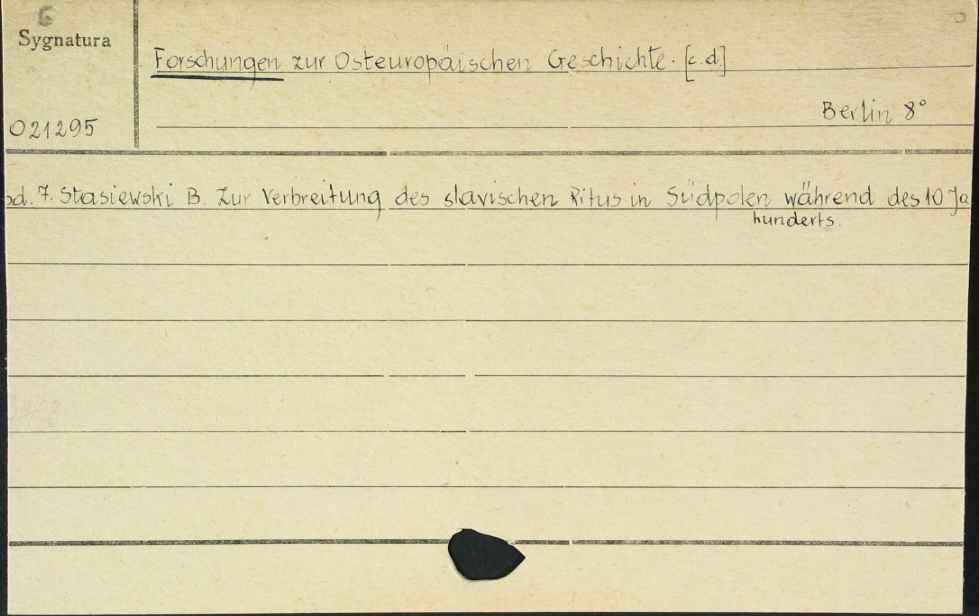 G
Sygnatura
Forschungen zur Osteuropäischen Geschichte. [c.d]
Berlin 8°
021295
bd. 7. Stasiewski B. Zur Verbreitung des slavischen Ritus in Südpolen während des 10 Ja
hunderts.